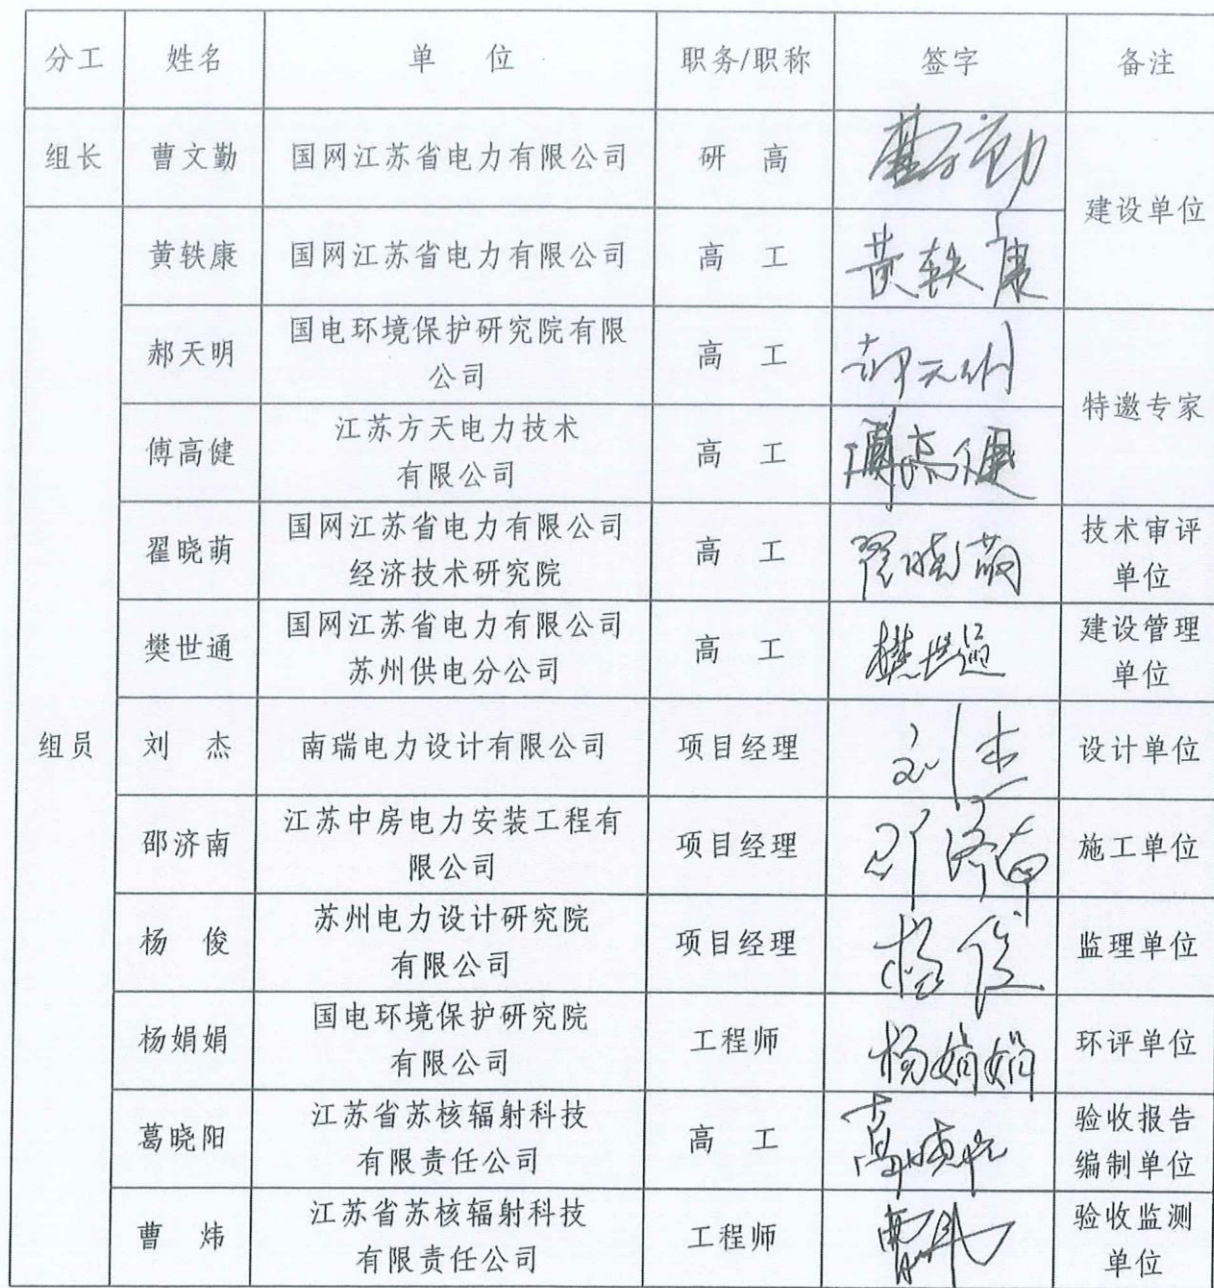 分工 姓名 单 位 职务/职称 签字 备注
组长 曹文勤 国网江苏省电力有限公司 研 高 曹文勤 建设单位
组员 黄轶康 国网江苏省电力有限公司 高 工 黄轶康
郝天明 国电环境保护研究院有限
公司 高 工 郝天明 特邀专家
傅高健 江苏方天电力技术
有限公司 高 工 傅高健
翟晓萌 国网江苏省电力有限公司
经济技术研究院 高 工 翟晓萌 技术审评
单位
樊世通 国网江苏省电力有限公司
苏州供电分公司 高 工 樊世通 建设管理
单位
刘 杰 南瑞电力设计有限公司 项目经理 刘杰 设计单位
邵济南 江苏中房电力安装工程有
限公司 项目经理 邵济南 施工单位
杨 俊 苏州电力设计研究院
有限公司 项目经理 杨俊 监理单位
杨娟娟 国电环境保护研究院
有限公司 工程师 杨娟娟 环评单位
葛晓阳 江苏省苏核辐射科技
有限责任公司 高 工 葛晓阳 验收报告
编制单位
曹 炜 江苏省苏核辐射科技
有限责任公司 工程师 曹炜 验收监测
单位